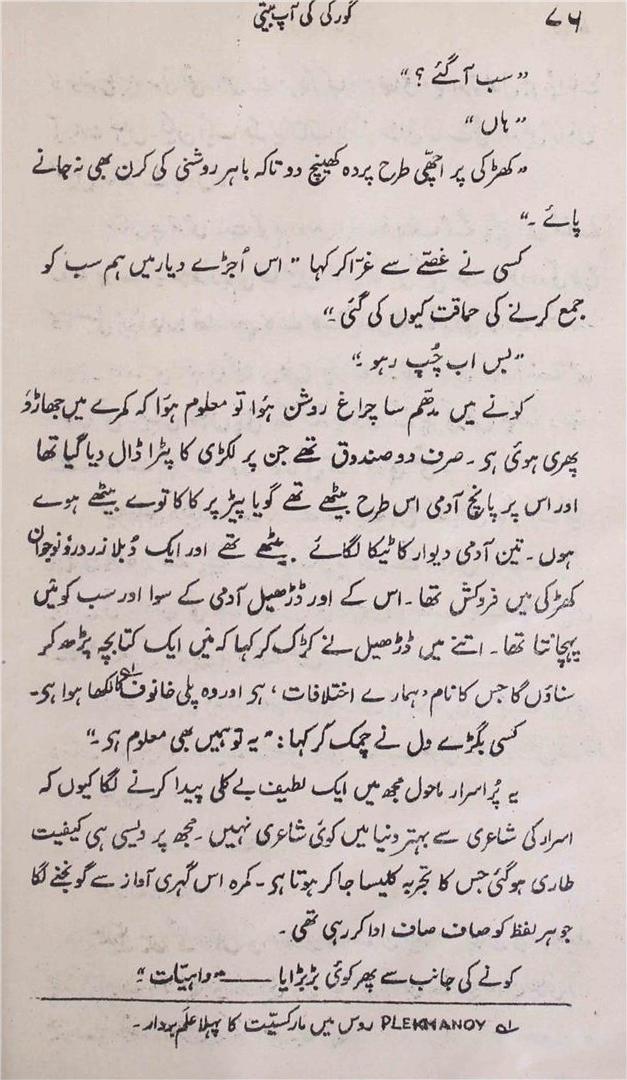 گورکی کی آپ بیتی ۷۶
“سب آ گئے ؟”
“ہاں”
“کھڑکی پر اچھی طرح پردہ کھینچ دو تاکہ باہر روشنی کی کرن بھی نہ جانے
پائے ۔”
کسی نے غصّے سے غرّا کر کہا “اس اُجڑے دیار میں ہم سب کو
جمع کرنے کی حماقت کیوں کی گئی ۔”
“بس اب چُپ رہو ۔”
کونے میں مدھّم سا چراغ روشن ہؤا تو معلوم ہؤا کہ کمرے میں جھاڑو
پھری ہوئی ہی ۔ صرف دو صندوق تھے جن پر لکڑی کا پٹرا ڈال دیا گیا تھا
اور اس پر پانچ آدمی اس طرح بیٹھے تھے گویا پیڑ پر کاکا توے بیٹھے ہوے
ہوں ۔ تین آدمی دیوار کا ٹیکا لگائے بیٹھے تھے اور ایک دُبلا زرد رؤ نوجوان
کھڑکی میں فروکش تھا ۔ اس کے اور ڈڑھیل آدمی کے سوا اور سب کو میَں
پہچانتا تھا ۔ اتنے میں ڈڑھیل نے کڑک کر کہا کہ میَں ایک کتابچہ پڑھ کر
سناؤں گا جس کا نام ‘ہمارے اختلافات’ ہی اور وہ پلی خانوف لہ کا لکھا ہوا ہی ۔
کسی بگڑے دل نے چمک کر کہا : “یہ تو ہمیں بھی معلوم ہی ۔”
یہ پُر اسرار ماحول مجھ میں ایک لطیف بے کلی پیدا کرنے لگا کیوں کہ
اسرار کی شاعری سے بہتر دنیا میں کوئی شاعری نہیں ۔ مجھ پر ویسی ہی کیفیت
طاری ہو گئی جس کا تجربہ کلیسا جا کر ہوتا ہی ۔ کمرہ اس گہری آواز سے گونجنے لگا
جو ہر لفظ کو صاف صاف ادا کر رہی تھی ۔
کونے کی جانب سے پھر کوئی بڑبڑایا —— “واہیّات ”
لہ PLEKHANOV روس میں مارکسیّت کا پہلا علَم بردار ۔